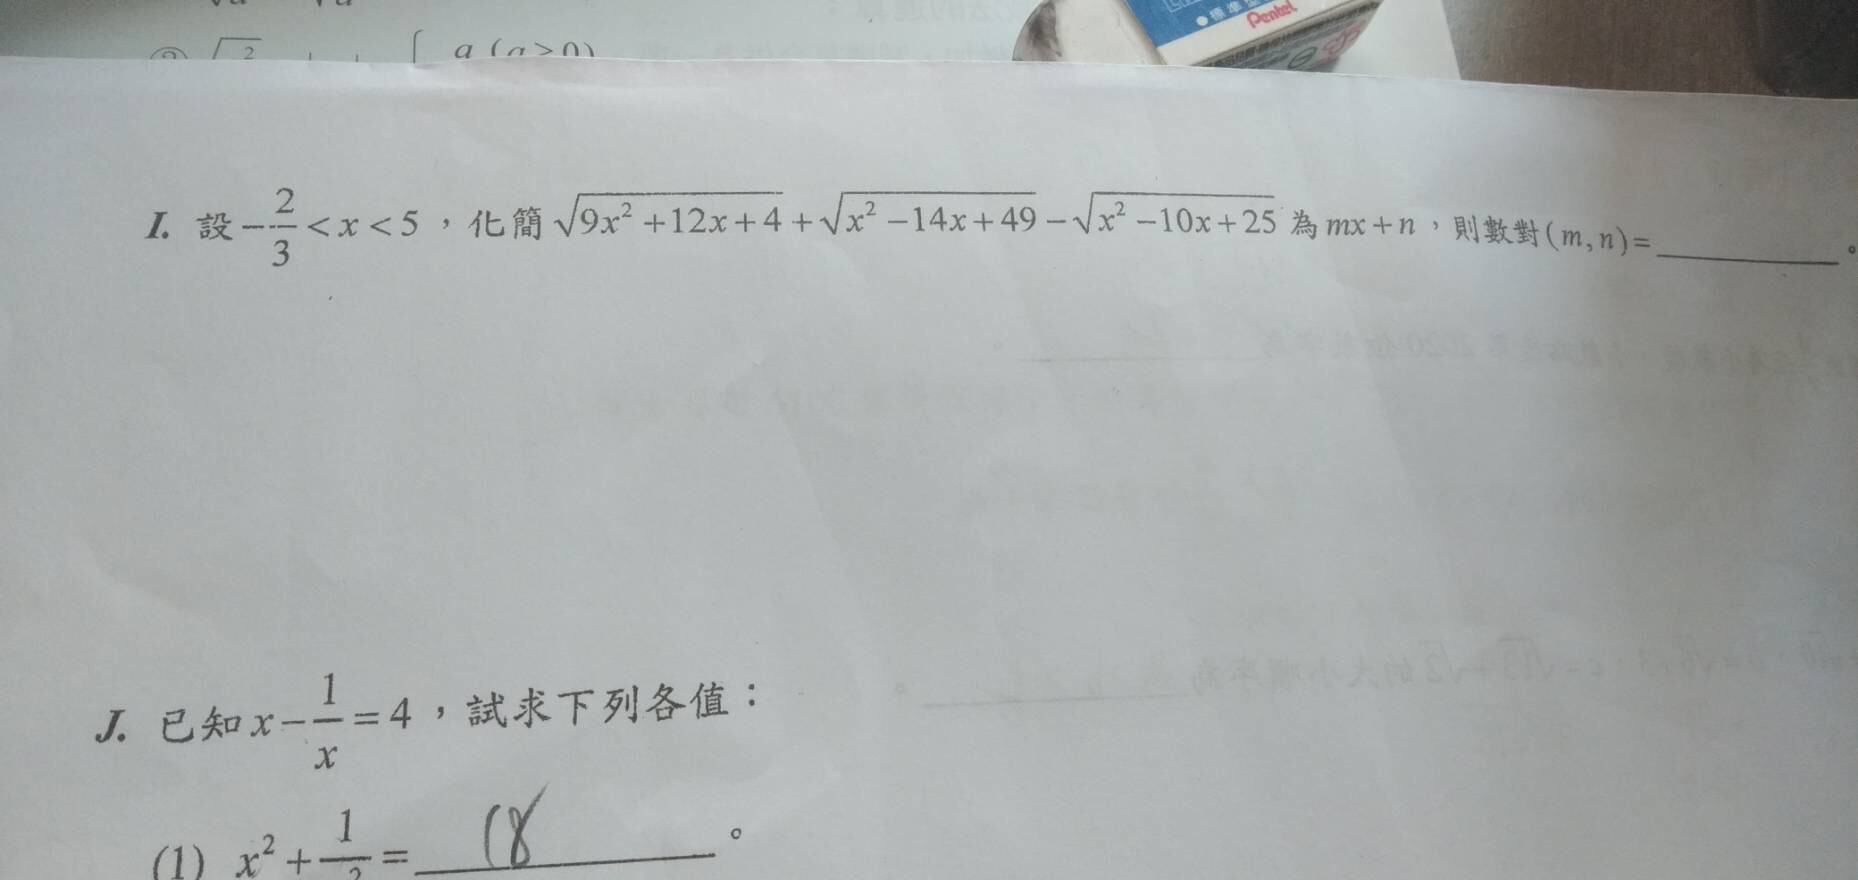 標準
Pentel
√ 2 a (a > 0)
I. 設 -2/3 < x < 5，化簡 √(9x² + 12x + 4) + √(x² - 14x + 49) - √(x² - 10x + 25) 為 mx + n，則數對 (m, n) = ________。
J. 已知 x - 1/x = 4，試求下列各值：
(1) x² + 1/ 2 = 18 。